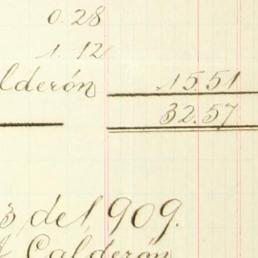 0.28
1.12
lderón 15.51
32.57
3, de 1909.
Calderón